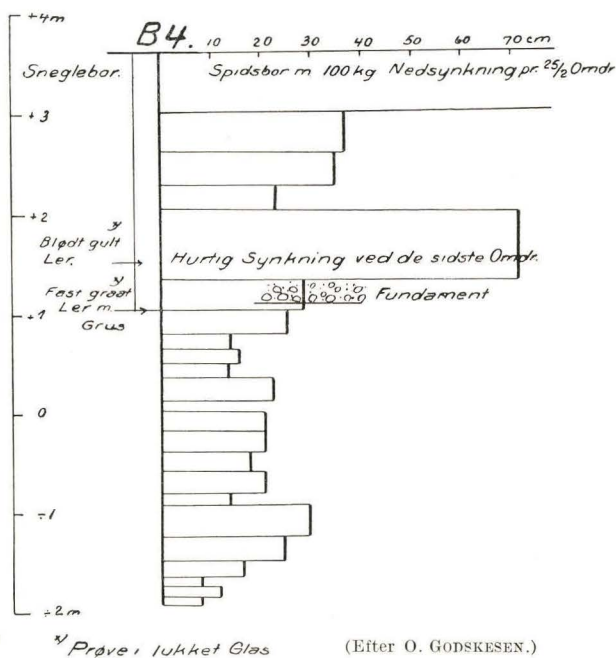 +4m
B4.
10 20 30 40 50 60 70 cm
Sneglebor.
Spidsbor m 100 kg Nedsynkning pr. 25/2 Omdr
+3
+2
x)
Blødt gult
Ler.
Hurtig Synkning ved de sidste Omdr.
x)
Fast graat
Ler m.
Grus
Fundament
+1
0
÷1
÷2m
x) Prøve i lukket Glas
(Efter O. GODSKESEN.)